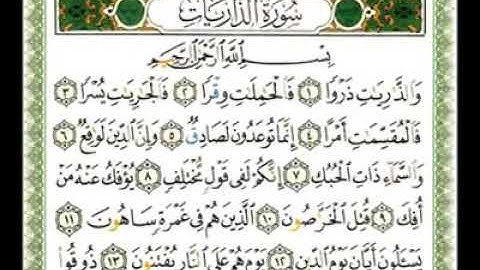 سُورَةُ الذَّارِيَاتِ
بِسْمِ اللَّهِ الرَّحْمَٰنِ الرَّحِيمِ
وَالذَّٰرِيَٰتِ ذَرْوًا ١ فَالْحَٰمِلَٰتِ وِقْرًا ٢ فَالْجَٰرِيَٰتِ يُسْرًا ٣
فَالْمُقَسِّمَٰتِ أَمْرًا ٤ إِنَّمَا تُوعَدُونَ لَصَادِقٌ ٥ وَإِنَّ الدِّينَ لَوَٰقِعٌ ٦
وَالسَّمَاءِ ذَاتِ الْحُبُكِ ٧ إِنَّكُمْ لَفِي قَوْلٍ مُّخْتَلِفٍ ٨ يُؤْفَكُ عَنْهُ مَنْ
أُفِكَ ٩ قُتِلَ الْخَرَّٰصُونَ ١٠ الَّذِينَ هُمْ فِي غَمْرَةٍ سَاهُونَ ١١
يَسْـَٔلُونَ أَيَّانَ يَوْمُ الدِّينِ ١٢ يَوْمَ هُمْ عَلَى النَّارِ يُفْتَنُونَ ١٣ ذُوقُوا